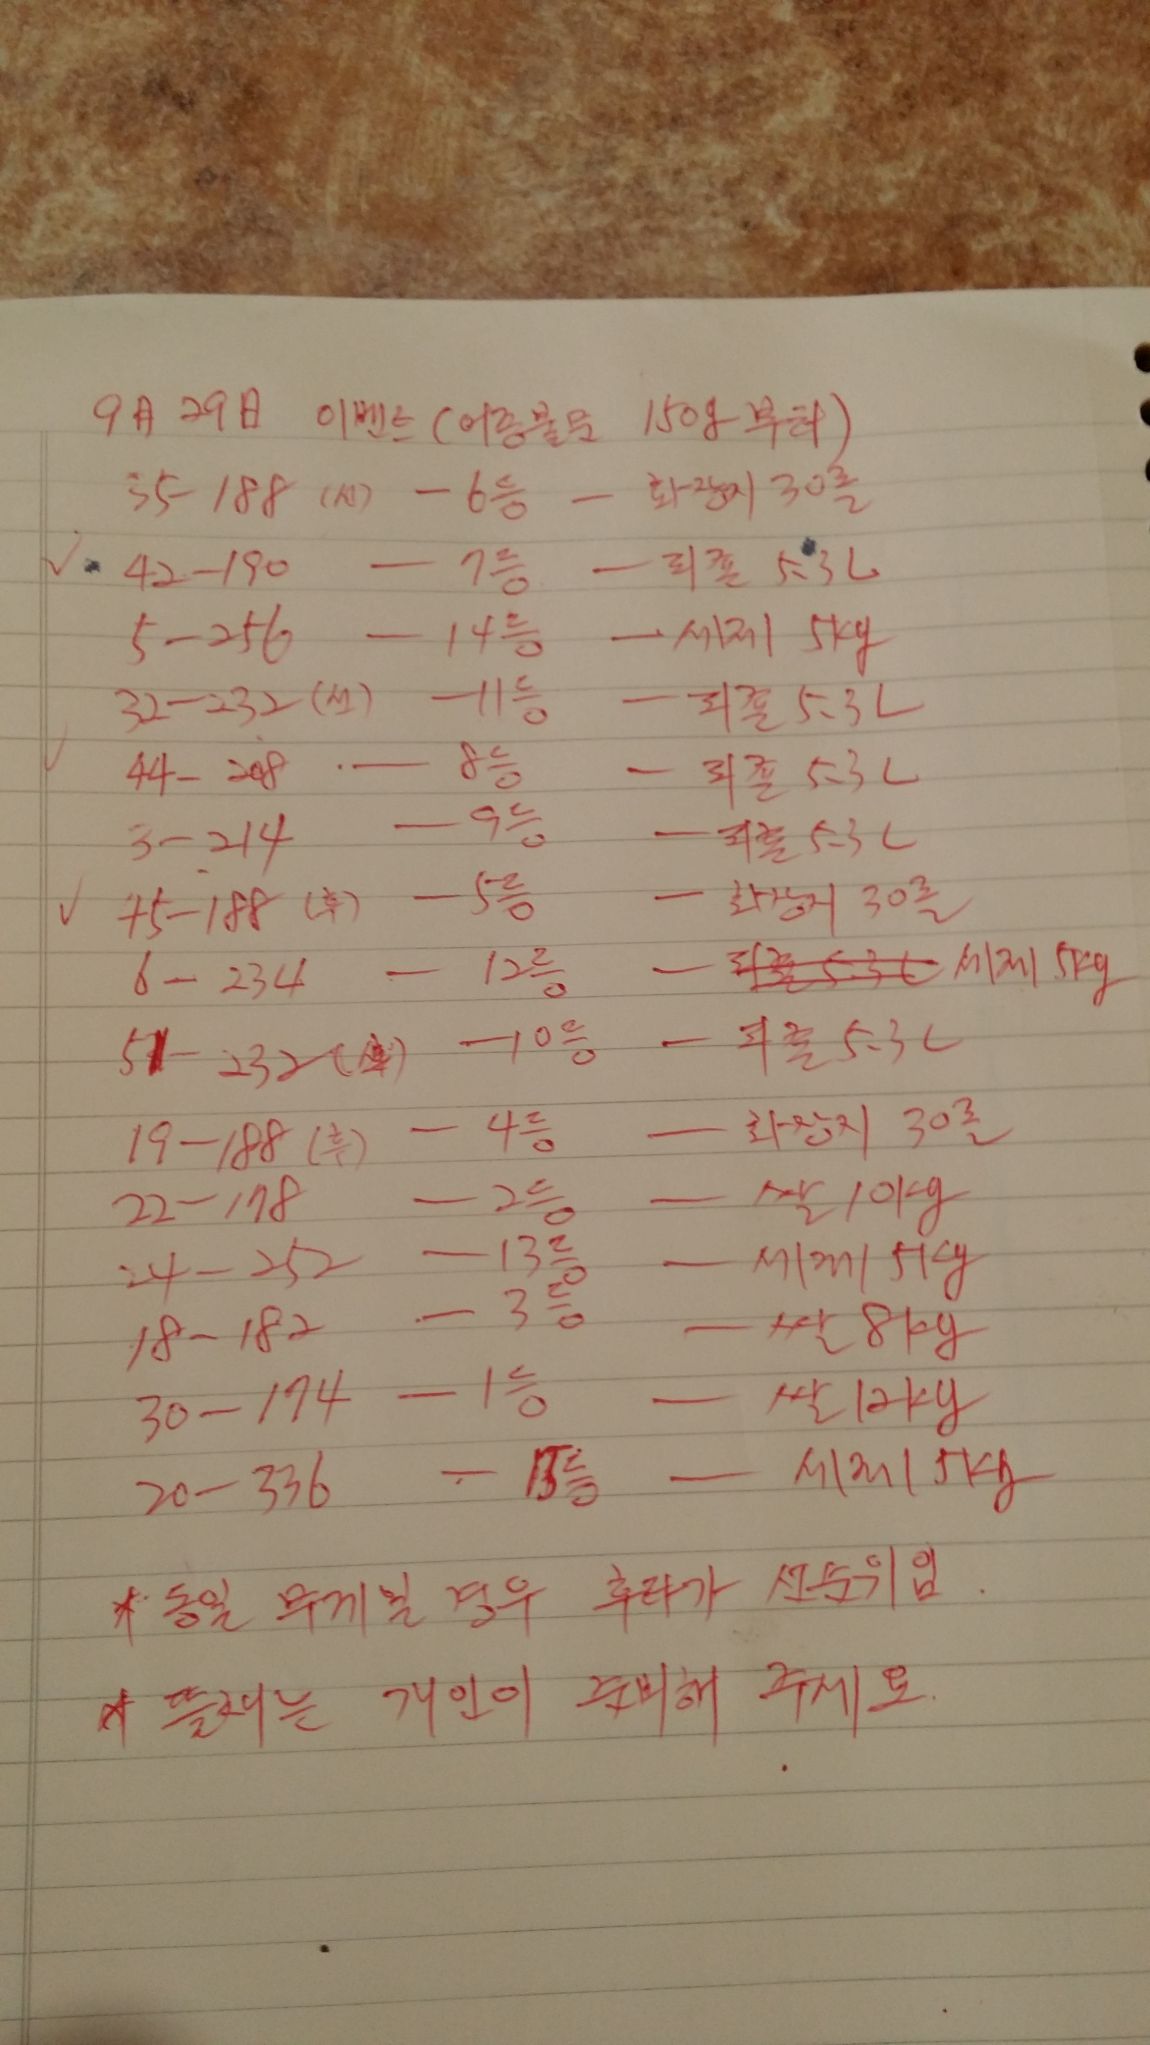 9月 29日 이벤트 (어종불문 150g 부터)
35-188 (선) - 6등 - 화장지 30롤
✓ 42-190 - 7등 - 퍼퓸 5.3L
5-256 - 14등 - 세제 5kg
32-232 (선) - 11등 - 퍼퓸 5.3L
✓ 44-208 - 8등 - 퍼퓸 5.3L
3-214 - 9등 - 퍼퓸 5.3L
✓ 75-188 (후) - 5등 - 화장지 30롤
6-234 - 12등 - 퍼퓸 5.3L 세제 5kg
51-232 (후) - 10등 - 퍼퓸 5.3L
19-188 (후) - 4등 - 화장지 30롤
22-178 - 2등 - 쌀 10kg
24-252 - 13등 - 세제 5kg
18-182 - 3등 - 쌀 8kg
30-174 - 1등 - 쌀 12kg
20-336 - 15등 - 세제 5kg
* 동일 무게일 경우 후라가 선순위임.
* 뜰채는 개인이 준비해 주세요.